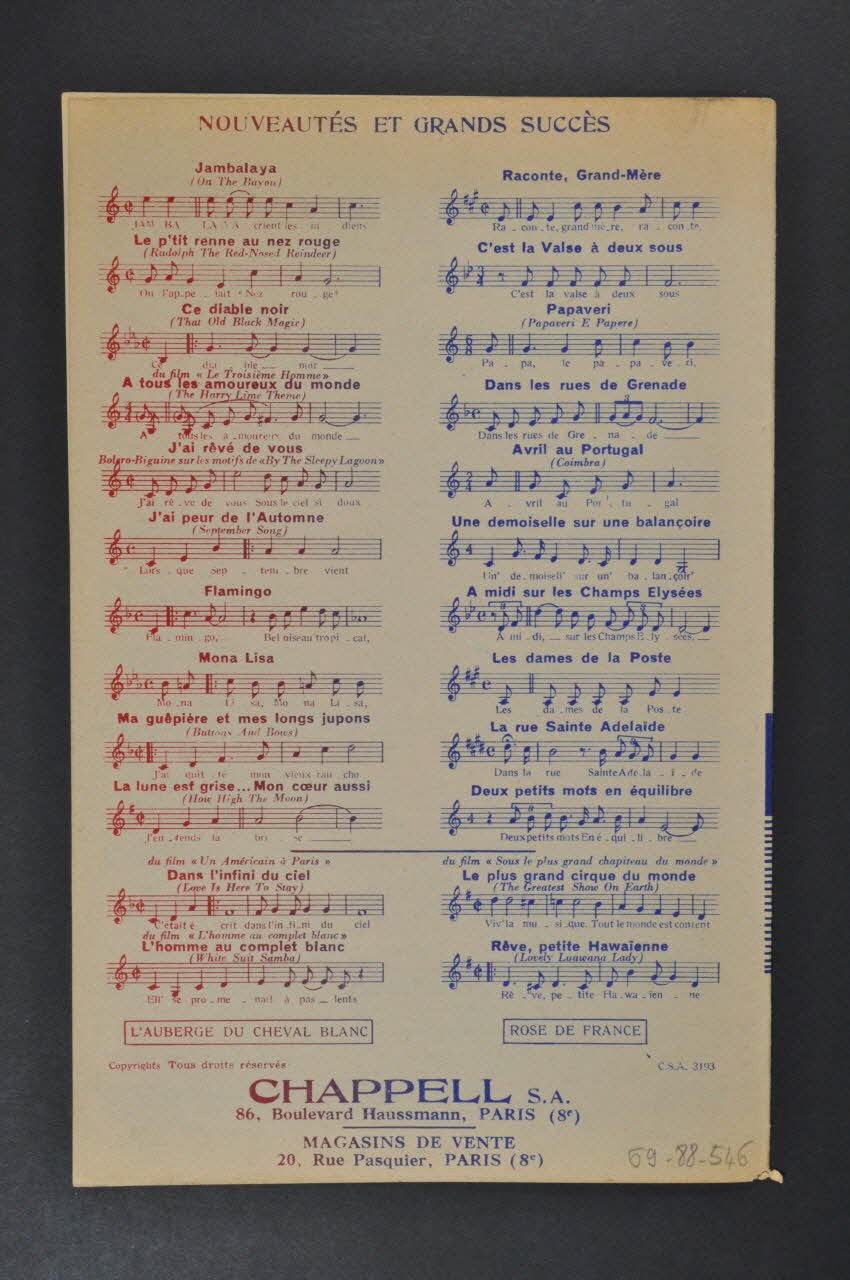 NOUVEAUTÉS ET GRANDS SUCCÈS
Jambalaya
(On The Bayou)
JAM BA LA YA crient les in diens
Le p'tit renne au nez rouge
(Rudolph The Red-Nosed Reindeer)
On l'ap-pe - lait "Nez rou - ge"
Ce diable noir
(That Old Black Magic)
Ce dia ble noir
du film « Le Troisième Homme »
A tous les amoureux du monde
(The Harry Lime Theme)
A tous les a - moureux du monde
J'ai rêvé de vous
Boléro-Biguine sur les motifs de «By The Sleepy Lagoon»
J'ai rê - ve de vous Sous le ciel si doux
J'ai peur de l'Automne
(September Song)
Lors - que Sep - tem - bre vient
Flamingo
Fla - min - go, Bel oiseau tropi - cal,
Mona Lisa
Mo - na Li - sa, Mo - na Li - sa,
Ma guêpière et mes longs jupons
(Buttons And Bows)
J'ai quit - té mon vieux ran cho
La lune est grise... Mon cœur aussi
(How High The Moon)
J'en - tends la bri - se
du film « Un Américain à Paris »
Dans l'infini du ciel
(Love Is Here To Stay)
C'était é - crit dans l'in - fi - ni du ciel
du film « L'homme au complet blanc »
L'homme au complet blanc
(White Suit Samba)
Ell' se pro - me - nait à pas lents
Raconte, Grand-Mère
Ra - con - te, grand mè - re, ra - con - te,
C'est la Valse à deux sous
C'est la valse à deux sous
Papaveri
(Papaveri E Papere)
Pa - pa, le pa - pa - ve - ri,
Dans les rues de Grenade
Dans les rues de Gre - na - de
Avril au Portugal
(Coimbra)
A - vril au Por - tu - gal
Une demoiselle sur une balançoire
Un' de - moisell' sur un' ba - lan - çoir'
A midi sur les Champs Elysées
A mi - di, sur les Champs E - ly - sées,
Les dames de la Poste
Les da - mes de la Pos - te
La rue Sainte Adelaïde
Dans la rue Sainte Adé - la - ï - de
Deux petits mots en équilibre
Deux petits mots En é - qui - li - bre
du film « Sous le plus grand chapiteau du monde »
Le plus grand cirque du monde
(The Greatest Show On Earth)
Viv' la mu - si - que. Tout le monde est content
Rêve, petite Hawaïenne
(Lovely Luawana Lady)
Rê - ve, pe - tite Ha - wa - ïen - ne
L'AUBERGE DU CHEVAL BLANC
ROSE DE FRANCE
Copyrights Tous droits réservés
C.S.A. 3193
CHAPPELL S.A.
86, Boulevard Haussmann, PARIS (8e)
MAGASINS DE VENTE
20, Rue Pasquier, PARIS (8e)
69-88-546